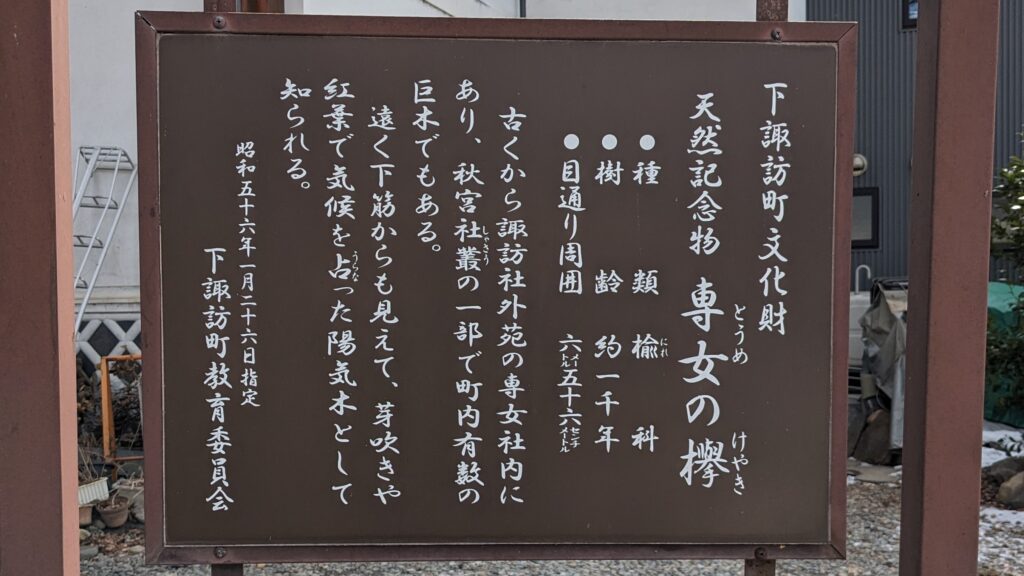 下諏訪町文化財
天然記念物 専女の欅
とうめ けやき
●種類 楡科
にれ
●樹齢 約一千年
●目通り周囲 六メートル五十六センチメートル
古くから諏訪社外苑の専女社内に
あり、秋宮社叢の一部で町内有数の
しゃそう
巨木でもある。
遠く下筋からも見えて、芽吹きや
紅葉で気候を占った陽気木として
うらな
知られる。
昭和五十六年一月二十六日指定
下諏訪町教育委員会